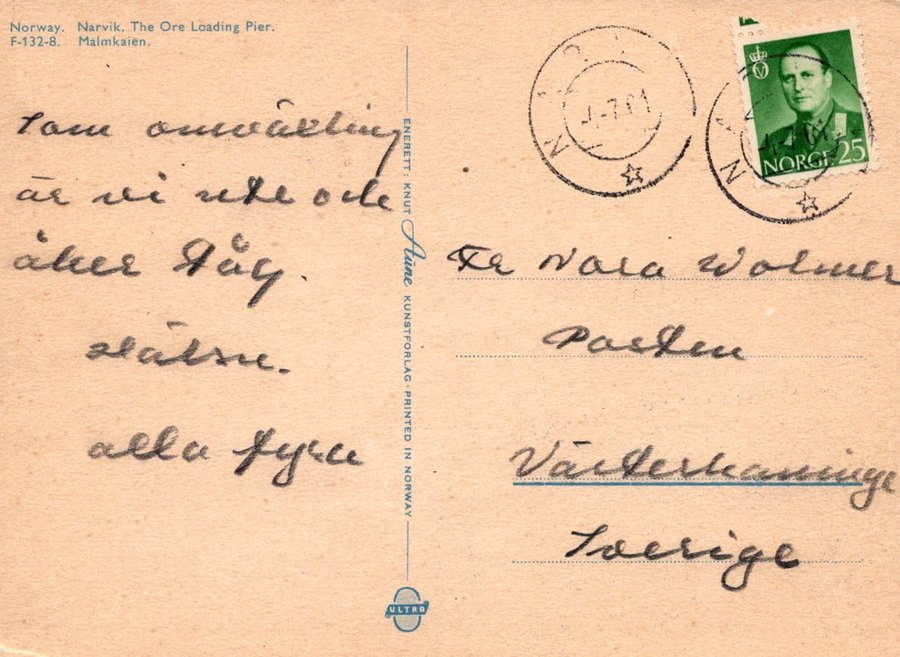 Norway. Narvik. The Ore Loading Pier.
F-132-8. Malmkaien.
Som omväxling
är vi ute och
åker tåg.
Hälsn.
alla fyra
ENERETT: KNUT Aune KUNSTFORLAG · PRINTED IN NORWAY
ULTRA
NORGE 25
Fr Nara Wolmer
Posten
Västerhaninge
Sverige